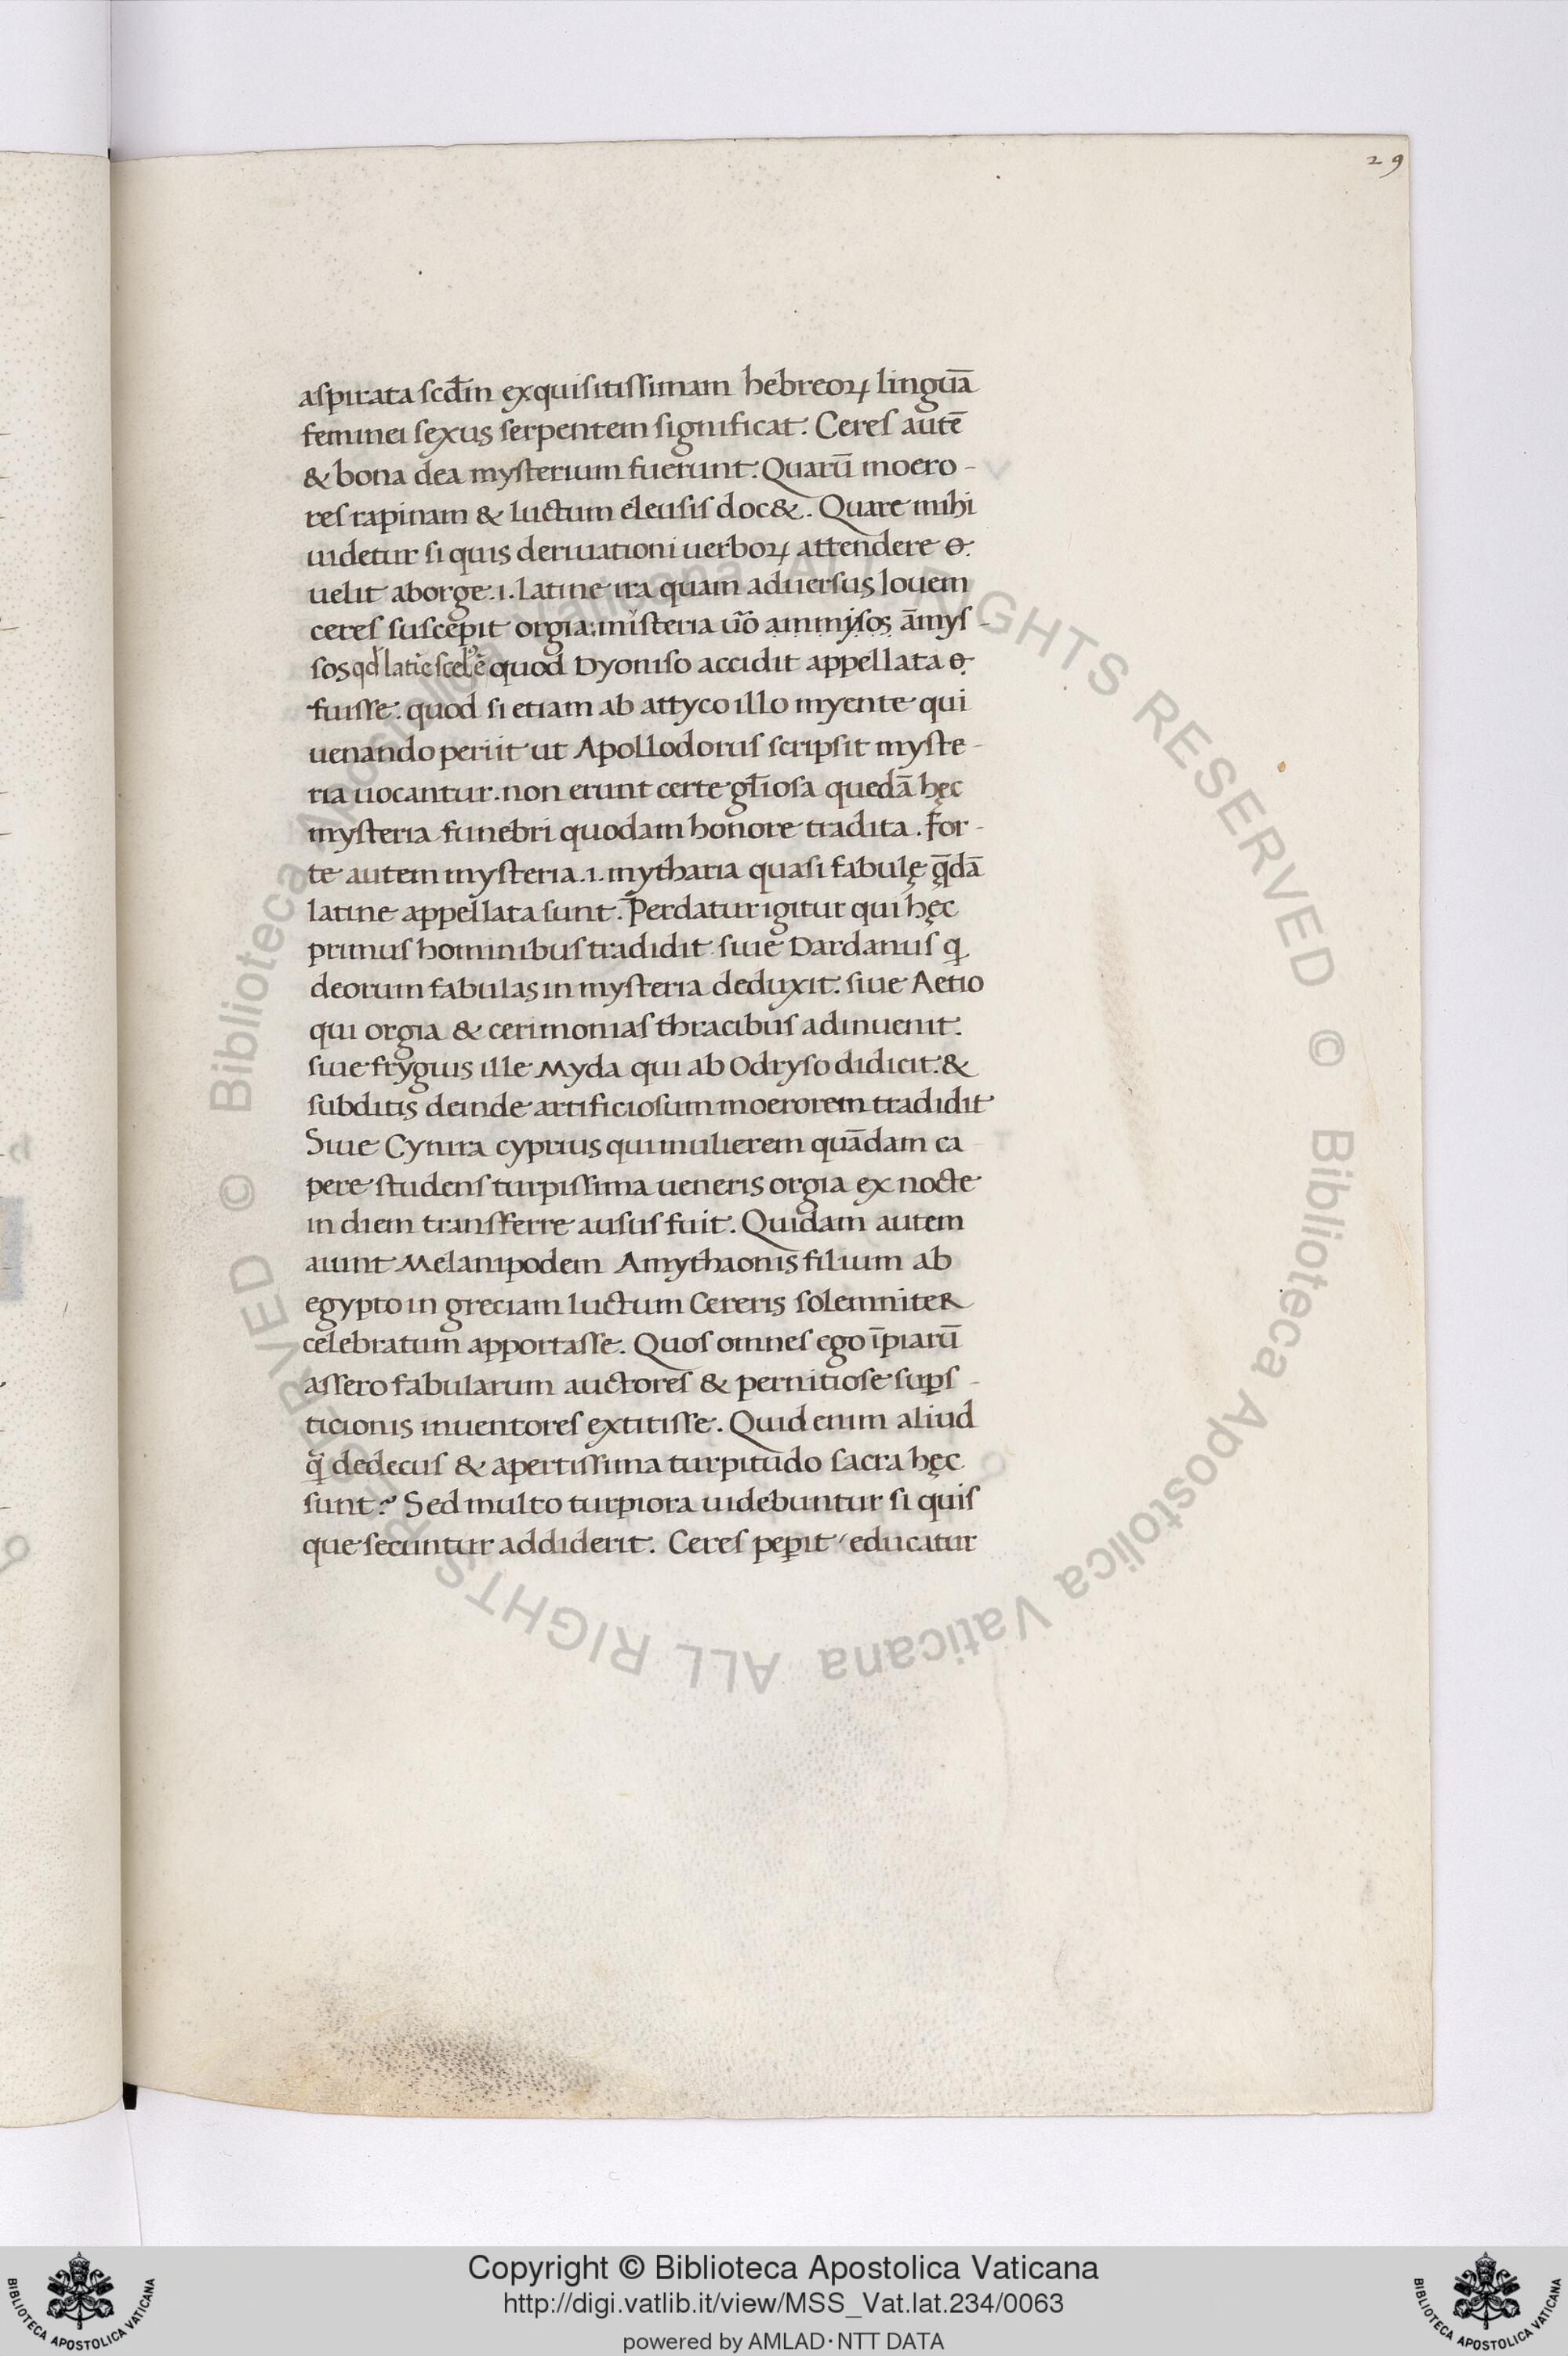 29
aspirata scd̄m exquisitissimam hebreoꝝ linguā
feminei sexus serpentem significat. Ceres autē
& bona dea mysterium fuerunt. Quarū moero-
res rapinam & luctum eleusis doc&. Quare mihi
uidetur si quis deriuationi uerboꝝ attendere
uelit aborge .i. latine ira quam aduersus Iouem
ceres suscepit orgia: misteria ūo ammysos āmys-
sos qd latīe scelꝰ ē quod Dyoniso accidit appellata
fuisse. quod si etiam ab attyco illo myente qui
uenando periit ut Apollodorus scripsit myste-
ria uocantur. non erunt certe gl̄iosa quedā hęc
mysteria funebri quodam honore tradita. For-
te autem mysteria .i. mytharia quasi fabulę q̄dā
latine appellata sunt. Perdatur igitur qui hęc
primus hominibus tradidit siue Dardanus q
deorum fabulas in mysteria deduxit. siue Aetio
qui orgia & cerimonias thracibus adinuenit.
siue frygius ille Myda qui ab Odryso didicit. &
subditis deinde artificiosum moerorem tradidit
Siue Cynira cyprius qui mulierem quādam ca
pere studens turpissima ueneris orgia ex nocte
in diem transferre ausus fuit. Quidam autem
aiunt Melanipodem Amythaonis filium ab
egypto in greciam luctum Cereris solemniter
celebratum apportasse. Quos omnes ego īpiarū
assero fabularum auctores & pernitiose suꝑs-
ticionis inuentores extitisse. Quid enim aliud
q̄ dedecus & apertissima turpitudo sacra hęc
sunt? Sed multo turpiora uidebuntur si quis
que secuntur addiderit. Ceres peꝑit / educatur
© Biblioteca Apostolica Vaticana ALL RIGHTS RESERVED © Biblioteca Apostolica Vaticana ALL RIGHTS RESERVED
BIBLIOTECA APOSTOLICA VATICANA
Copyright © Biblioteca Apostolica Vaticana
http://digi.vatlib.it/view/MSS_Vat.lat.234/0063
powered by AMLAD·NTT DATA
BIBLIOTECA APOSTOLICA VATICANA